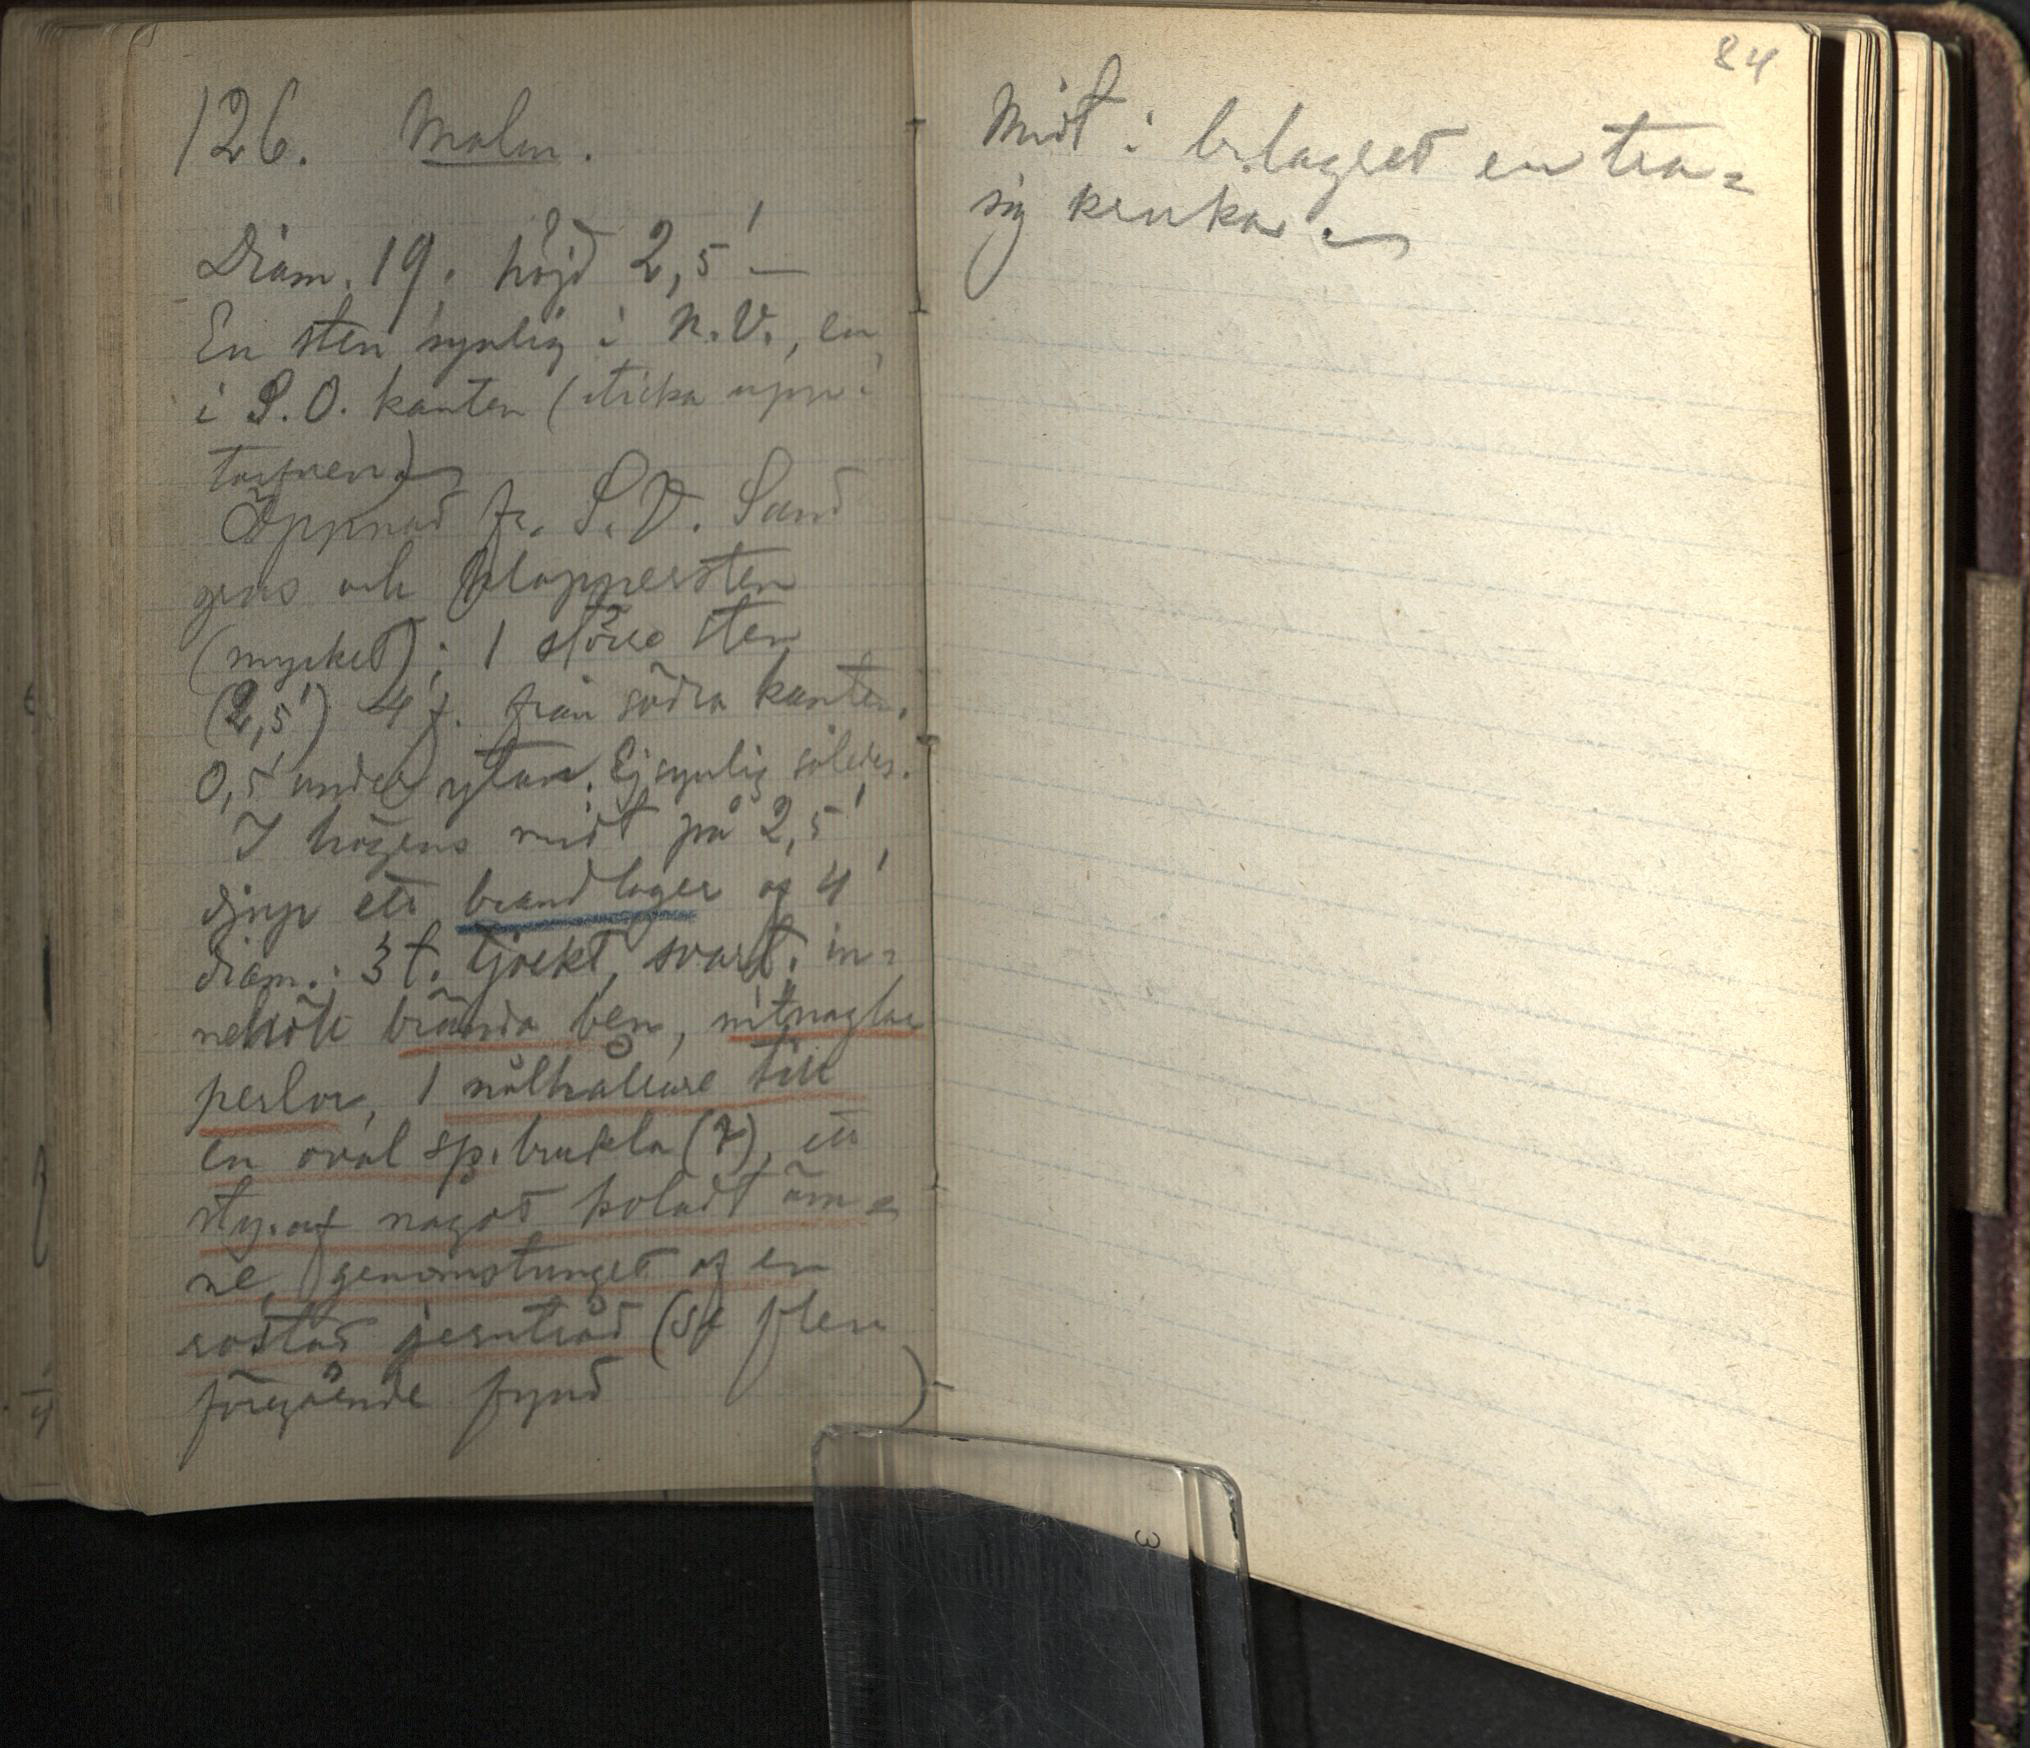 126. Malm.
Diam. 19. höjd 2,5' —
En sten synlig i N.V., en
i S.O. kanten (sticka upp i
torfven)
Öppnad fr. S.V. Sand
grus och klappersten
(mycket); 1 större sten
(2,5') 4 f. från södra kanten.
0,5' under ytan. Ej synlig således.
I högens midt på 2,5'
djup ett brandlager af 4'
diam.: 3 t. tjockt, svart, in-
nehöll brända ben, nitnaglar
perlor, 1 nålhållare till
en oval sp. buckla (?), ett
sty. af något poladt äm-
ne, genomstunget af en
rostad jerntråd (se flere
föregående fynd )
84
Midt i br.lagret en tra-
sig kruka.